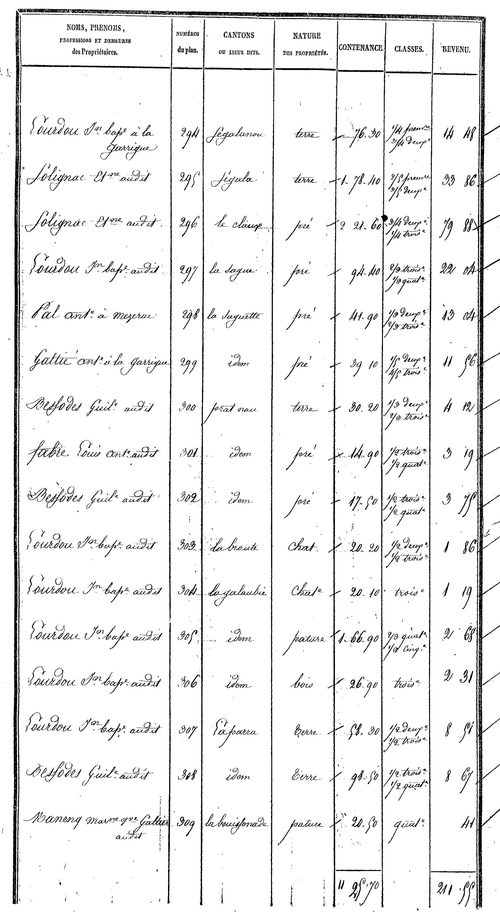 NOMS, PRÉNOMS, PROFESSIONS ET DEMEURES des Propriétaires. NUMÉROS du plan. CANTONS OU LIEUX DITS. NATURE DES PROPRIÉTÉS. CONTENANCE. CLASSES. REVENU.
Lourdou Jn bapte à la Garrigue 294 Ségalanou terre 76.30 1/4 premre 3/4 deuxe 14 48
Solignac Etne audit 295 Ségala terre 1.78.40 33 86
Solignac Etne audit 296 le claux pré 2 21.60 3/4 deuxe 1/4 troise 79 88
Lourdou Jn bapte audit 297 la sagne pré 94.40 2/3 troise 1/3 quate 22 04
Pal ante à mezerac 298 la saguette pré 41.90 1/3 deuxe 2/3 troise 13 04
Gattié ante à la Garrigue 299 idem pré 39 10 11 56
Bessodes Guile audit 300 prat nau terre 30.20 1/3 deuxe 2/3 troise 4 12
fabre Louis ant audit 301 idem pré 14.90 1/2 troise 1/2 quate 3 19
Bessodes Guile audit 302 idem pré 17.50 1/2 troise 1/2 quate 3 75
Lourdou Jn bapte audit 303 la broute chat. 20.20 1/2 deuxe 1/2 troise 1 86
Lourdou Jn bapte audit 304 la galaubie chate 20.10 troise 1 19
Lourdou Jn bapte audit 305 idem pature 1.66.90 2/3 quate 1/3 cinqe 2 68
Lourdou Jn bapte audit 306 idem bois 26.90 troise 2 31
Lourdou Jn bapte audit 307 Laparra Terre 58.30 1/2 deuxe 1/2 troise 8 51
Bessodes Guile audit 308 idem Terre 98.50 1/2 troise 1/2 quate 8 67
Manenq Gattié audit 309 la bouissonade pature 20.50 quate 41
11 25.70 211.55